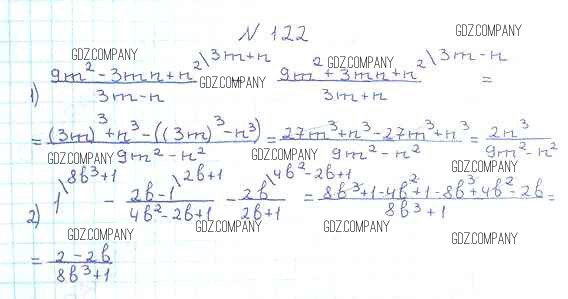 N 122
GDZ.COMPANY GDZ.COMPANY GDZ.COMPANY
1) (9m² - 3mn + n²)/(3m - n) \3m+n GDZ.COMPANY (9m² + 3mn + n²)/(3m + n) \3m-n =
= ((3m)³ + n³ - ((3m)³ - n³))/(9m² - n²) = (27m³ + n³ - 27m³ + n³)/(9m² - n²) = 2n³/(9m² - n²)
GDZ.COMPANY GDZ.COMPANY GDZ.COMPANY
2) 1 \8b³+1 - (2b-1)/(4b² - 2b + 1) \2b+1 - 2b/(2b+1) \4b²-2b+1 = (8b³ + 1 - 4b² + 1 - 8b³ + 4b² - 2b)/(8b³ + 1) =
GDZ.COMPANY GDZ.COMPANY GDZ.COMPANY GDZ.COMPANY
= (2 - 2b)/(8b³ + 1)